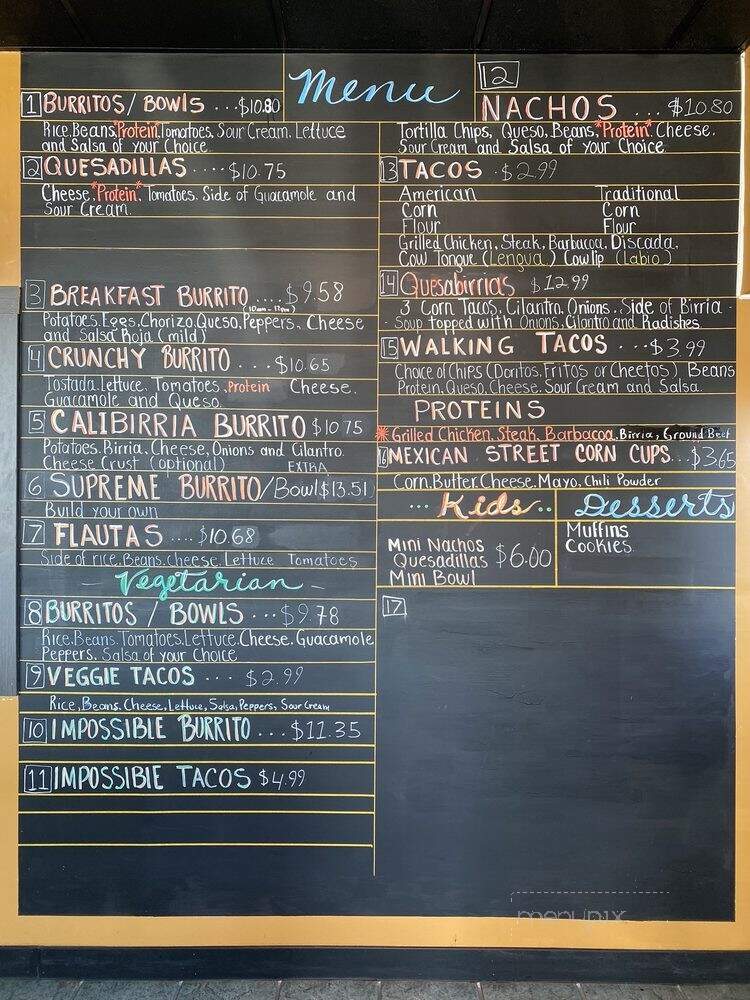 Menu
1 BURRITOS/BOWlS ...$10.80
Rice.Beans.*Protein*.Tomatoes. Sour Cream. Lettuce
and Salsa of your Choice
2 QUESADILLAS ....$10.75
Cheese.*Protein*. Tomatoes. Side of Guacamole and
Sour Cream.
3 BREAKFAST BURRITO ....$9.58
Potatoes. Eggs. Chorizo. Queso. Peppers. Cheese
and Salsa Roja (mild)
4 CRUNCHY BURRITO ...$10.65
Tostada. Lettuce. Tomatoes. Protein Cheese.
Guacamole and Queso.
5 CALIBIRRIA BURRITO $10.75
Potatoes. Birria. Cheese, Onions and Cilantro.
Cheese Crust (optional) EXTRA
6 SUPREME BURRITO/Bowl $13.51
Build your own
7 FLAUTAS ....$10.68
Side of rice. Beans. Cheese. Lettuce Tomatoes
- Vegetarian -
8 BURRITOS / BOWLS ...$9.78
Rice. Beans. Tomatoes. Lettuce. Cheese. Guacamole
Peppers. Salsa of your Choice
9 VEGGIE TACOS ... $2.99
Rice, Beans. Cheese, Lettuce, Salsa, Peppers, Sour Cream
10 IMPOSSIBLE BURRITO ...$11.35
11 IMPOSSIBlE TACOS $4.99
12
NACHOS ... $10.80
Tortilla Chips, Queso, Beans, *Protein*. Cheese.
Sour Cream and Salsa of your Choice
13 TACOS .$2.99
American Traditional
Corn Corn
Flour Flour
Grilled Chicken, Steak, Barbacoa, Discada.
Cow Tongue (Lengua) Cowlip (Labio)
14 Quesabirrias $12.99
3 Corn Tacos. Cilantro. Onions. Side of Birria -
- Soup topped with Onions. Cilantro and Radishes
15 WALKING TACOS ...$3.99
Choice of Chips (Doritos. Fritos or Cheetos) Beans
Protein. Queso. Cheese. Sour Cream and Salsa.
PROTEINS
* Grilled Chicken. Steak. Barbacoa. Birria, Ground Beef
16 MEXICAN STREET CORN CUPS...$3.65
Corn. Butter. Cheese. Mayo, Chili Powder
... Kids.. Desserts
Mini Nachos
Quesadillas $6.00
Mini Bowl
Muffins
Cookies
17
menupix